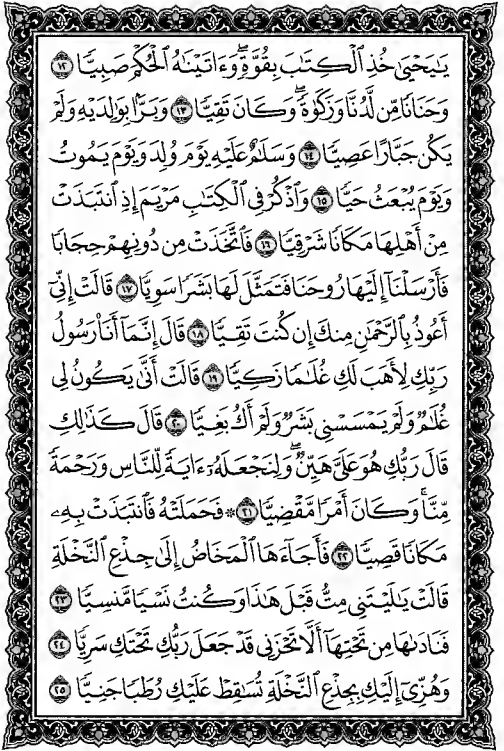 يَٰيَحْيَىٰ خُذِ ٱلْكِتَٰبَ بِقُوَّةٍۖ وَءَاتَيْنَٰهُ ٱلْحُكْمَ صَبِيّٗا ١٢
وَحَنَانٗا مِّن لَّدُنَّا وَزَكَوٰةٗۖ وَكَانَ تَقِيّٗا ١٣ وَبَرَّۢا بِوَٰلِدَيْهِ وَلَمْ
يَكُن جَبَّارًا عَصِيّٗا ١٤ وَسَلَٰمٌ عَلَيْهِ يَوْمَ وُلِدَ وَيَوْمَ يَمُوتُ
وَيَوْمَ يُبْعَثُ حَيّٗا ١٥ وَٱذْكُرْ فِي ٱلْكِتَٰبِ مَرْيَمَ إِذِ ٱنتَبَذَتْ
مِنْ أَهْلِهَا مَكَانٗا شَرْقِيّٗا ١٦ فَٱتَّخَذَتْ مِن دُونِهِمْ حِجَابٗا
فَأَرْسَلْنَآ إِلَيْهَا رُوحَنَا فَتَمَثَّلَ لَهَا بَشَرٗا سَوِيّٗا ١٧ قَالَتْ إِنِّيٓ
أَعُوذُ بِٱلرَّحْمَٰنِ مِنكَ إِن كُنتَ تَقِيّٗا ١٨ قَالَ إِنَّمَآ أَنَا۠ رَسُولُ
رَبِّكِ لِأَهَبَ لَكِ غُلَٰمٗا زَكِيّٗا ١٩ قَالَتْ أَنَّىٰ يَكُونُ لِي
غُلَٰمٞ وَلَمْ يَمْسَسْنِي بَشَرٞ وَلَمْ أَكُ بَغِيّٗا ٢٠ قَالَ كَذَٰلِكِ
قَالَ رَبُّكِ هُوَ عَلَيَّ هَيِّنٞۖ وَلِنَجْعَلَهُۥٓ ءَايَةٗ لِّلنَّاسِ وَرَحْمَةٗ
مِّنَّاۚ وَكَانَ أَمْرٗا مَّقْضِيّٗا ٢١ ۞ فَحَمَلَتْهُ فَٱنتَبَذَتْ بِهِۦ
مَكَانٗا قَصِيّٗا ٢٢ فَأَجَآءَهَا ٱلْمَخَاضُ إِلَىٰ جِذْعِ ٱلنَّخْلَةِ
قَالَتْ يَٰلَيْتَنِي مِتُّ قَبْلَ هَٰذَا وَكُنتُ نَسْيٗا مَّنسِيّٗا ٢٣
فَنَادَىٰهَا مِن تَحْتِهَآ أَلَّا تَحْزَنِي قَدْ جَعَلَ رَبُّكِ تَحْتَكِ سَرِيّٗا ٢٤
وَهُزِّيٓ إِلَيْكِ بِجِذْعِ ٱلنَّخْلَةِ تُسَٰقِطْ عَلَيْكِ رُطَبٗا جَنِيّٗا ٢٥